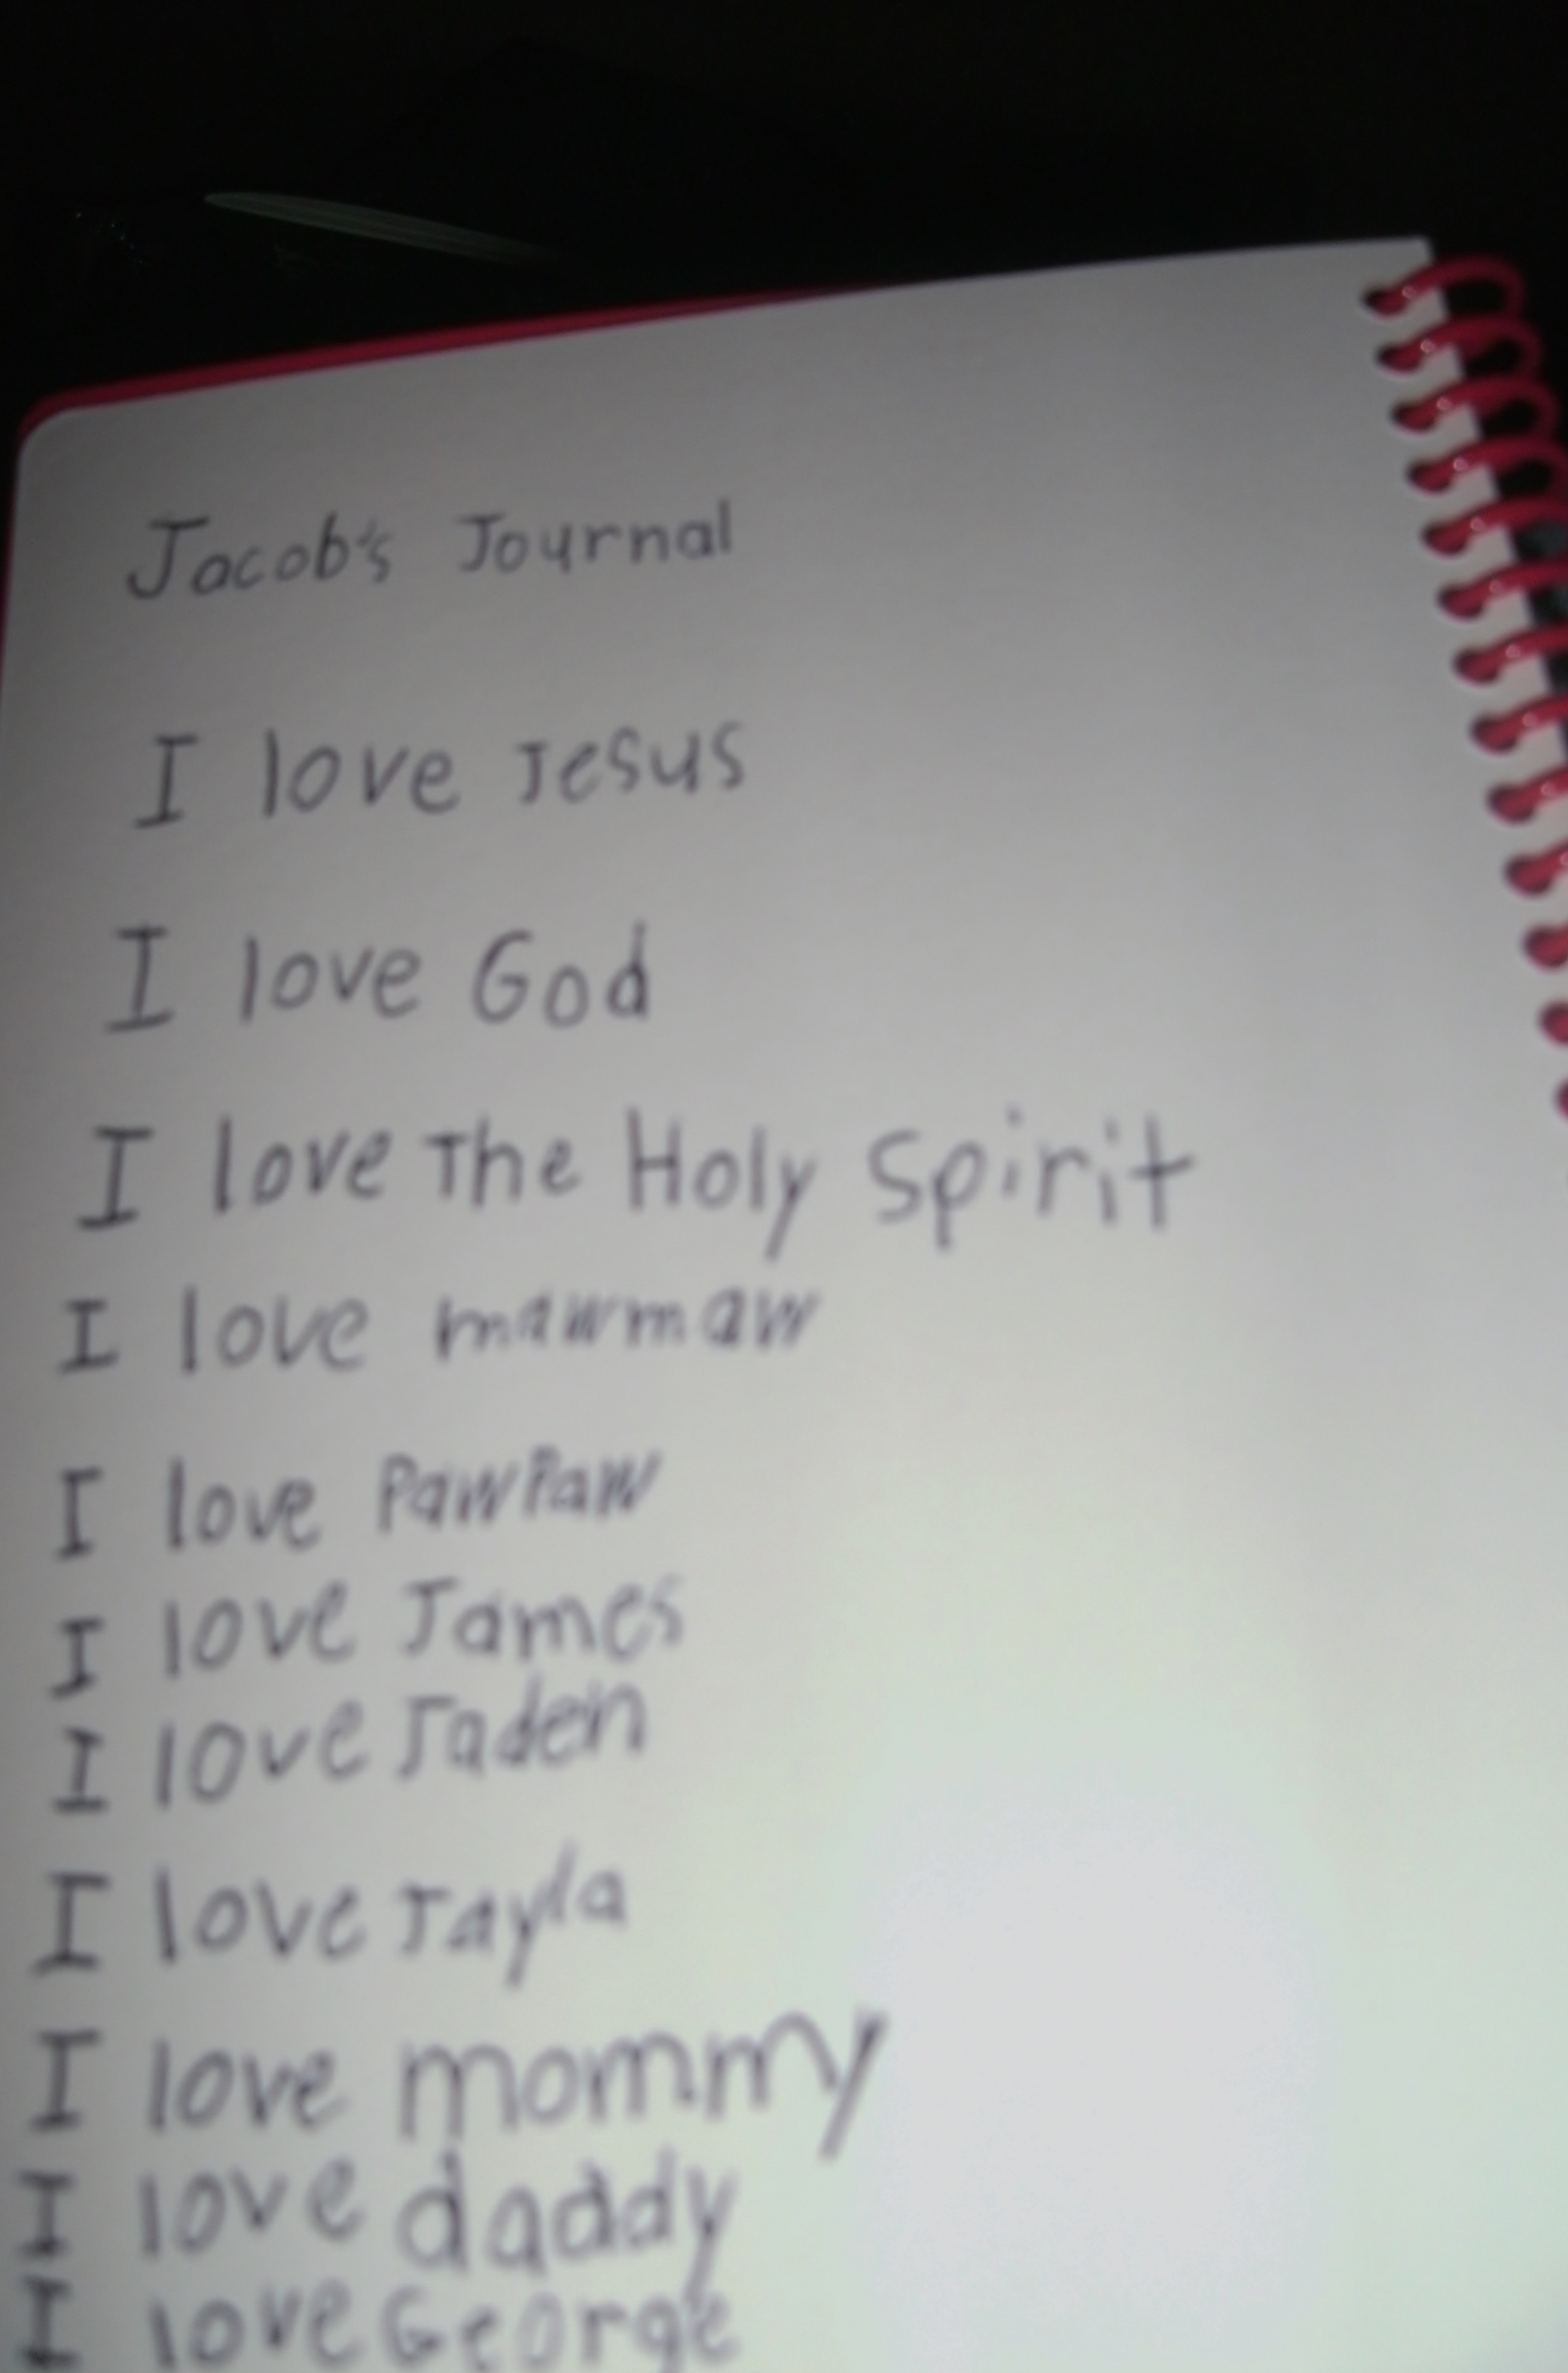 Jacob's Journal
I love Jesus
I love God
I love The Holy Spirit
I love mawmaw
I love PawPaw
I love James
I love Jaden
I love Jayla
I love mommy
I love daddy
I love George